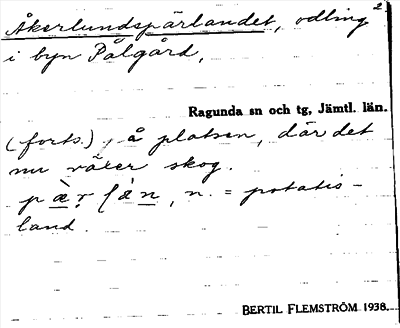 Åkerlundspärlandet, odling 2
i byn Pålgård,
Ragunda sn och tg, Jämtl. län.
(forts.), å platsen, där det
nu växer skog.
pæ̀r̥lan, n. = potatis-
land.
BERTIL FLEMSTRÖM 1938.